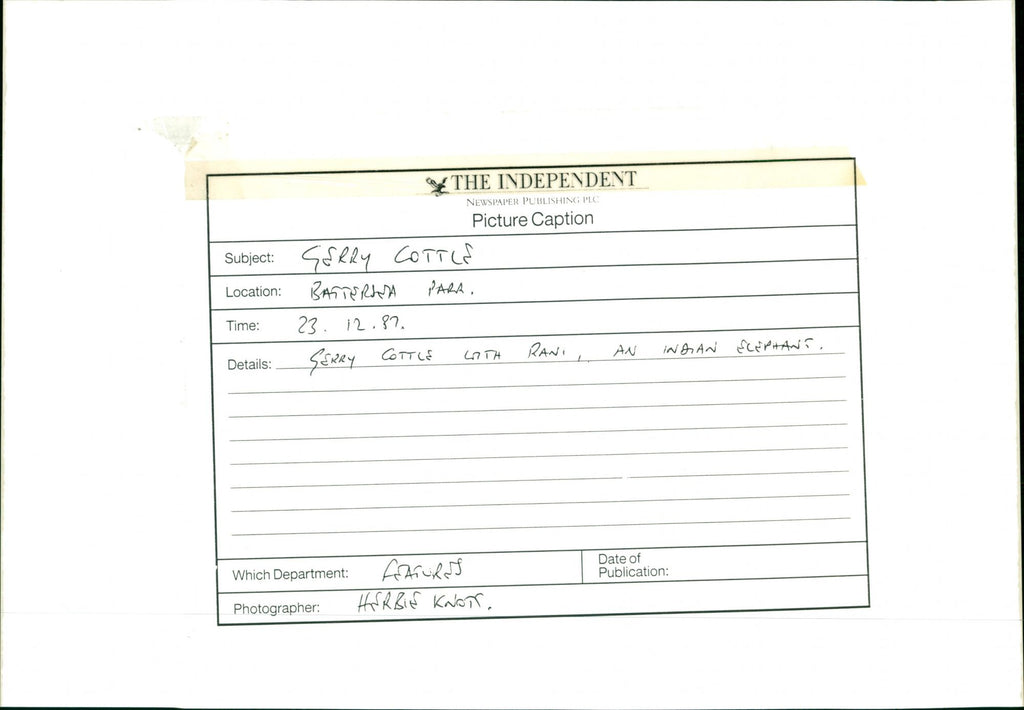 THE INDEPENDENT
NEWSPAPER PUBLISHING PLC
Picture Caption
Subject: GERRY COTTLE
Location: BATTERSEA PARK.
Time: 23. 12. 87.
Details: GERRY COTTLE WITH RANI, AN INDIAN ELEPHANT.
Which Department: FEATURES
Date of
Publication:
Photographer: HERBIE KNOTT.